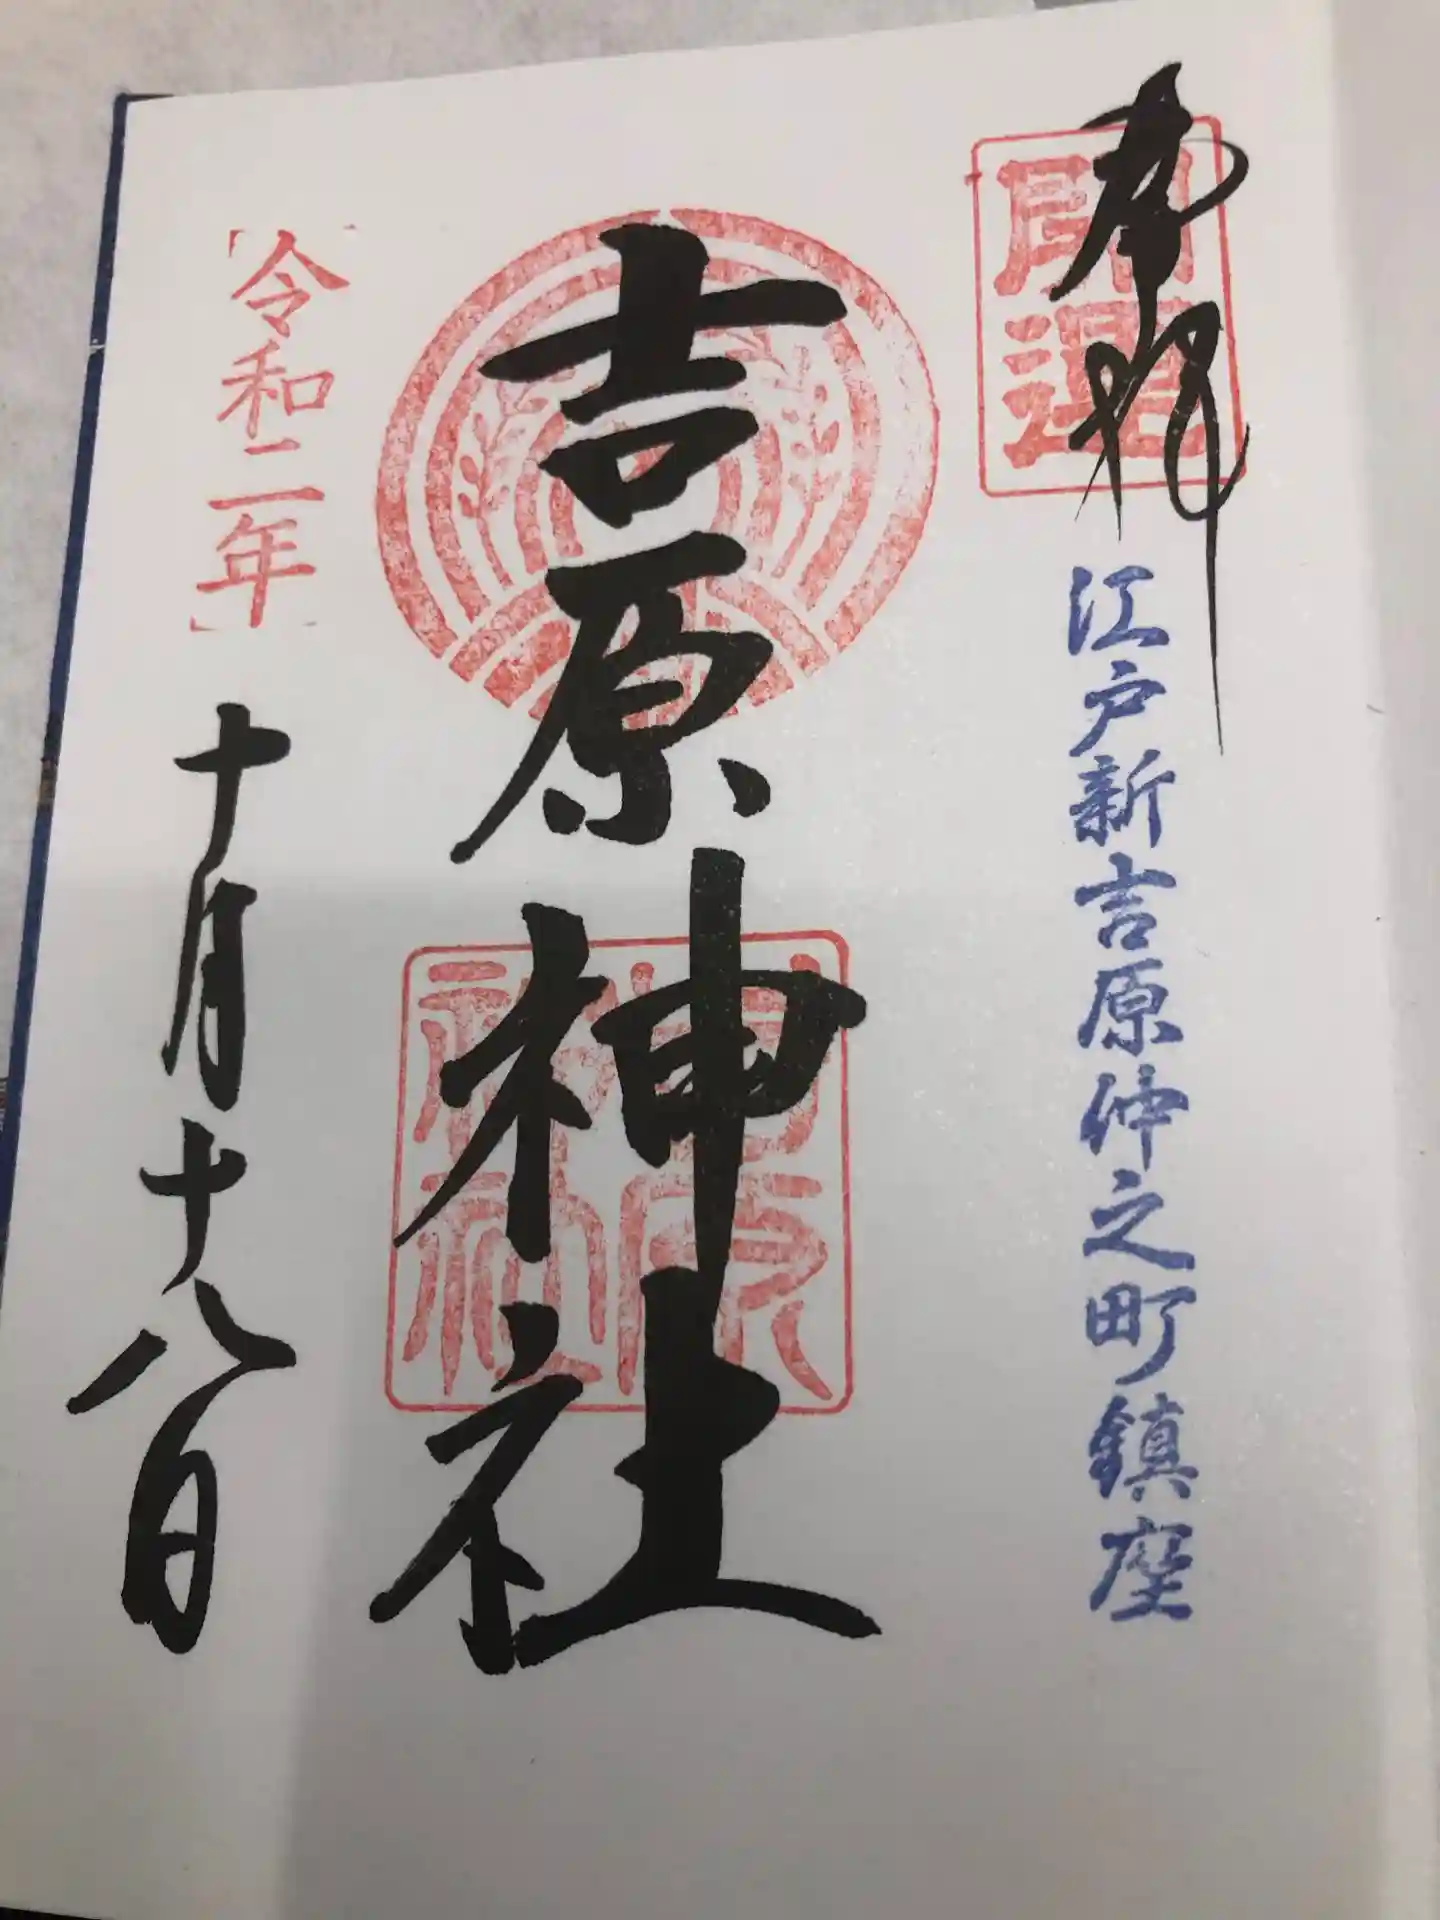 奉拝
開運
江戸新吉原仲之町鎮座
吉原神社
吉原神社
令和二年
十月十八日